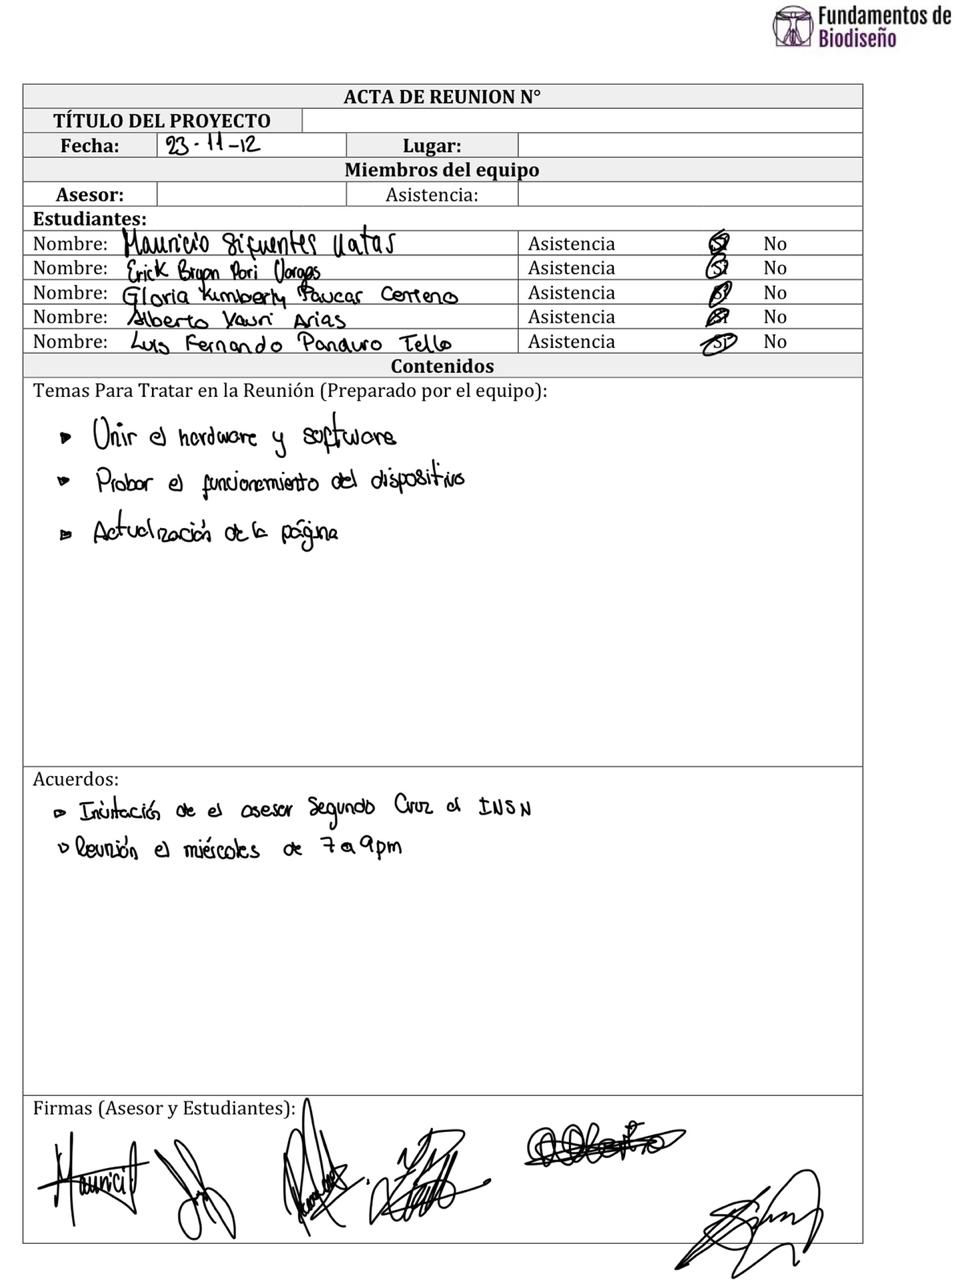 Fundamentos de
Biodiseño
ACTA DE REUNION N°
TÍTULO DEL PROYECTO
Fecha: 23-11-12 Lugar:
Miembros del equipo
Asesor: Asistencia:
Estudiantes:
Nombre: Mauricio Sifuentes Asistencia Si No
Nombre: Erick Bryan Pari Vargas Asistencia Si No
Nombre: Gloria Kimberly Paucar Centeno Asistencia Si No
Nombre: Alberto Yauri Arias Asistencia Si No
Nombre: Luis Fernando Panduro Tello Asistencia Si No
Contenidos
Temas Para Tratar en la Reunión (Preparado por el equipo):
Unir el hardware y software
Probar el funcionamiento del dispositivo
Actualización de la página
Acuerdos:
Invitación de el asesor Segundo Cruz al INSN
Reunión el miércoles de 7 a 9pm
Firmas (Asesor y Estudiantes):